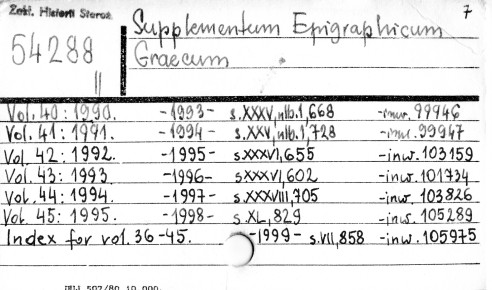 Zakł. Historii Staroż. 7
Supplementum Epigraphicum
54288 Graecum.
II
Vol. 40: 1990. -1993- s.XXXV,nlb.1,668 -inw. 99946
Vol. 41: 1991. -1994- s.XXV,nlb.1,728 -inw. 99947
Vol. 42: 1992. -1995- s.XXXVI,655 -inw. 103159
Vol. 43: 1993 -1996- s.XXXVI,602 -inw. 101734
Vol. 44: 1994. -1997- s.XXXVIII,705 -inw. 103826
Vol. 45: 1995. -1998- s.XL,829 -inw. 105289
Index for vol. 36-45. -1999- s.VII,858 -inw. 105975
507/80 10.000.